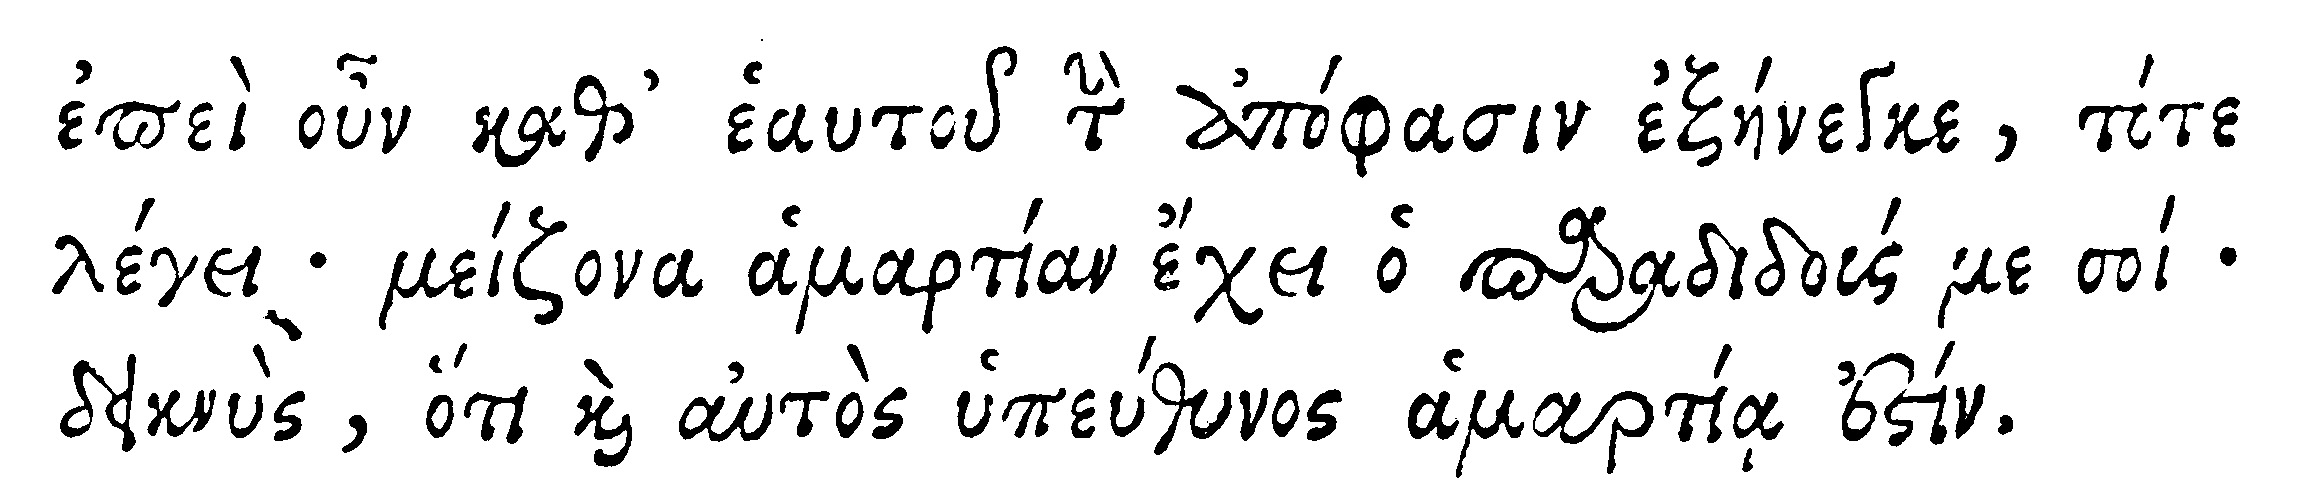 ἐπεὶ οὖν καθ' ἑαυτοῦ τὴν ἀπόφασιν ἐξήνεγκε, τί τε
λέγει · μείζονα ἁμαρτίαν ἔχει ὁ παραδιδούς με σοί ·
δεικνὺς, ὅτι καὶ αὐτὸς ὑπεύθυνος ἁμαρτίᾳ ἐστίν.